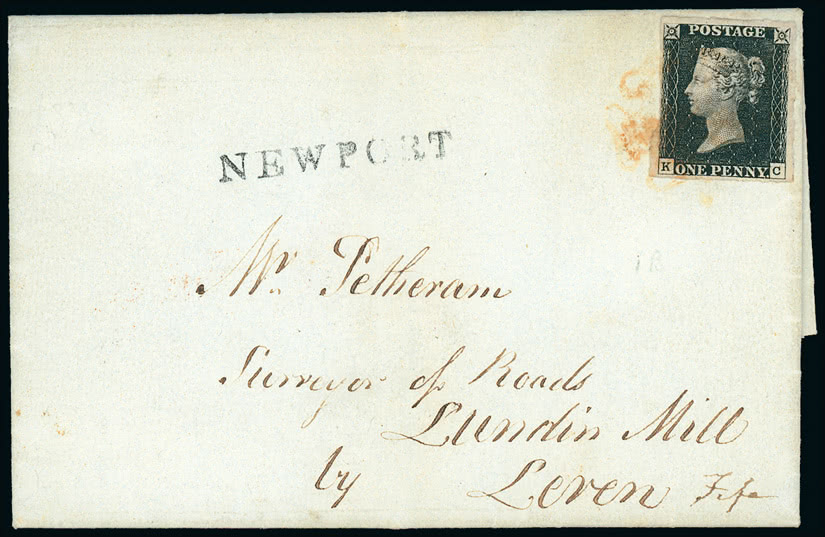 POSTAGE
K ONE PENNY C
NEWPORT
1B
Mr. Petheram
Surveyor of Roads
Lundin Mill
by Leven Fife